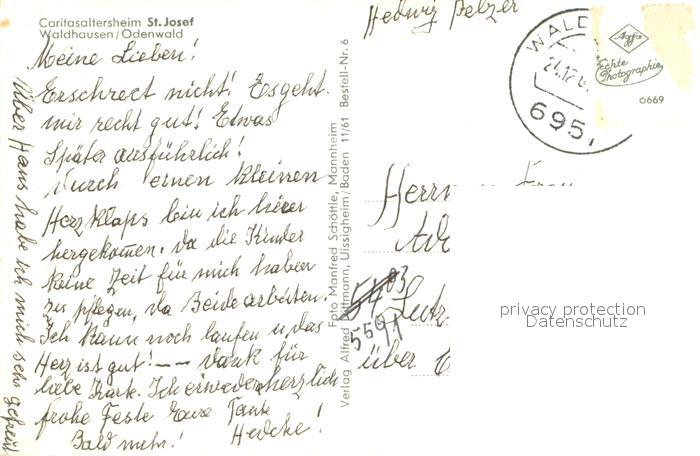 Caritasaltersheim St. Josef
Waldhausen/Odenwald
Meine Lieben!
Erschrect nicht! Es geht
mir recht gut! Etwas
später ausführlich!
Durch einen kleinen
Herzklaps bin ich hier
hergekom̄en. Da die Kinder
keine Zeit für mich haben
zu pflegen, da Beide arbeiten.
Ich kann noch laufen u. das
Herz ist gut! –– Dank für
liebe Karte. Ich erwidere herzlich
frohe Feste Eure Tante
Bald mehr! Hedche!
Über Hans habe ich mich sehr gefreut
Foto Manfred Schöttle, Mannheim
Verlag Alfred Dittmann, Uissigheim/Baden 11/61 Bestell-Nr. 6
Hedwig Belzer
WALD
21.12.6
695,
Agfa
echte
Photographie
0669
Herrn u. Frau
5403
5591
Lutz
über
privacy protection
Datenschutz